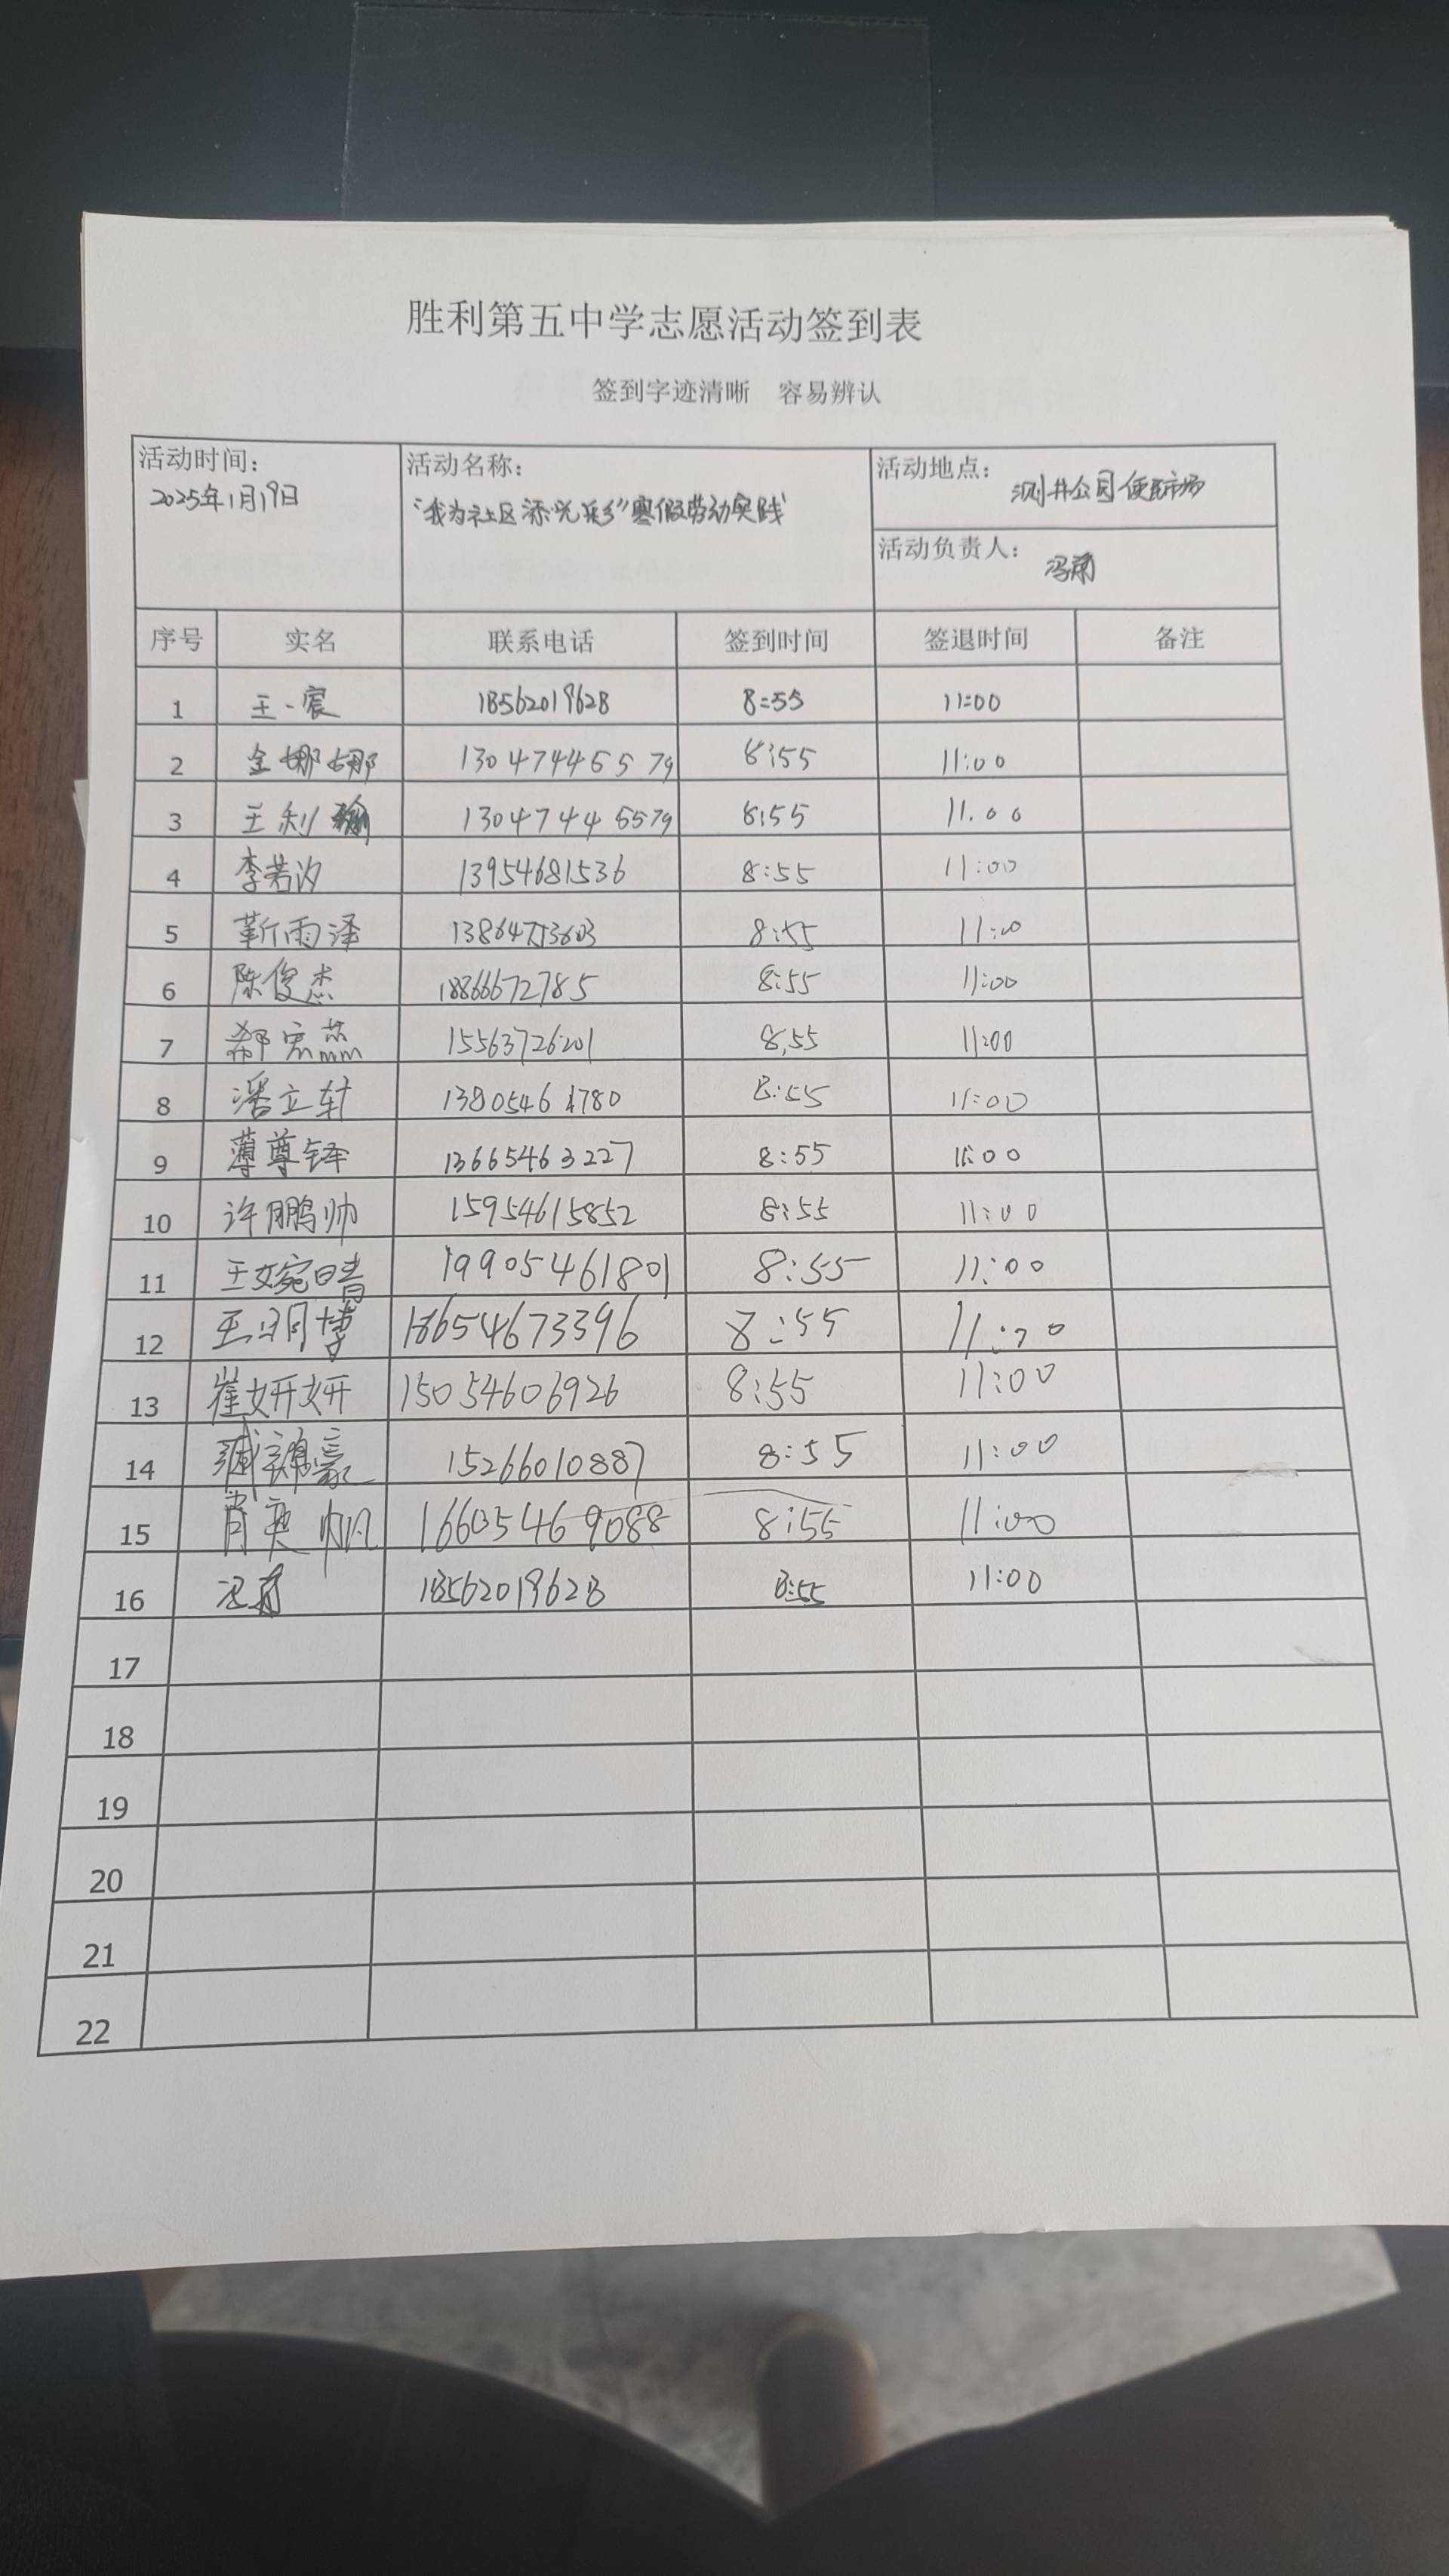 胜利第五中学志愿活动签到表
签到字迹清晰 容易辨认
活动时间: 活动名称: 活动地点: 测井公园便民市场
2025年1月19日 “我为社区添光彩”寒假劳动实践
活动负责人: 冯
序号 实名 联系电话 签到时间 签退时间 备注
1 王一宸 18562019628 8:55 11:00
2 金娜娜 13047446579 8:55 11:00
3 王利 13047446579 8:55 11.00
4 李若汐 13954681536 8:55 11:00
5 靳雨泽 8:55 11:00
6 陈俊杰 18866672785 8:55 11:00
7 郗宏蕊 15563726201 8,55 11:00
8 潘立轩 13805461780 8:55 11:00
9 薄尊铎 13665463227 8:55 11:00
10 许鹏帅 15954615852 8:55 11:00
11 王婉晴 19905461801 8:55 11:00
12 王明博 18654673396 8:55 11:00
13 崔妍妍 15054606926 8:55 11:00
14 臧豪 15266010887 8:55 11:00
15 肖奕帆 16605469088 8:55 11:00
16 冯 18562019628 8:55 11:00
17
18
19
20
21
22